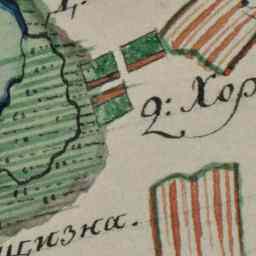 Д.
2: Хор
щизна.